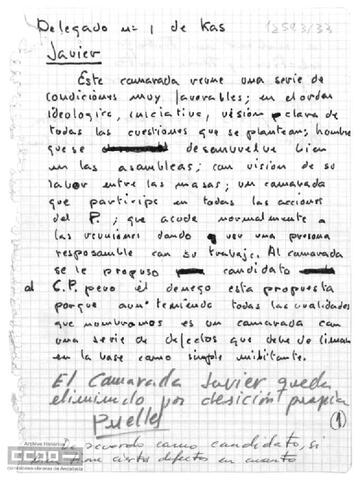 Delegado nº 1 de Kas 12593/33
Javier
Este camarada reune una serie de
condiciones muy favorables; en el orden
ideologico, iniciativa, visión clara de
todas las cuestiones que se plantean; hombre
que se desenvuelve bien
en las asambleas; con vision de su
labor entre las masas; un camarada
que participe en todas las acciones
del P.; que acude normalmente a
las reuniones dando ver una persona
responsable con su trabajo. Al camarada
se le propuso candidato
al C.P. pero el denego esta propuesta
porque aun teniendo todas las cualidades
que nombramos es un camarada con
una serie de defectos que debe de limar
en la base como simple militante.
El Camarada Javier queda
eliminado por desición propia
Puelles
de acuerdo como candidato, si
bien tiene ciertos defectos en cuanto
1
Archivo Histórico
CCOO
comisiones obreras de Andalucía